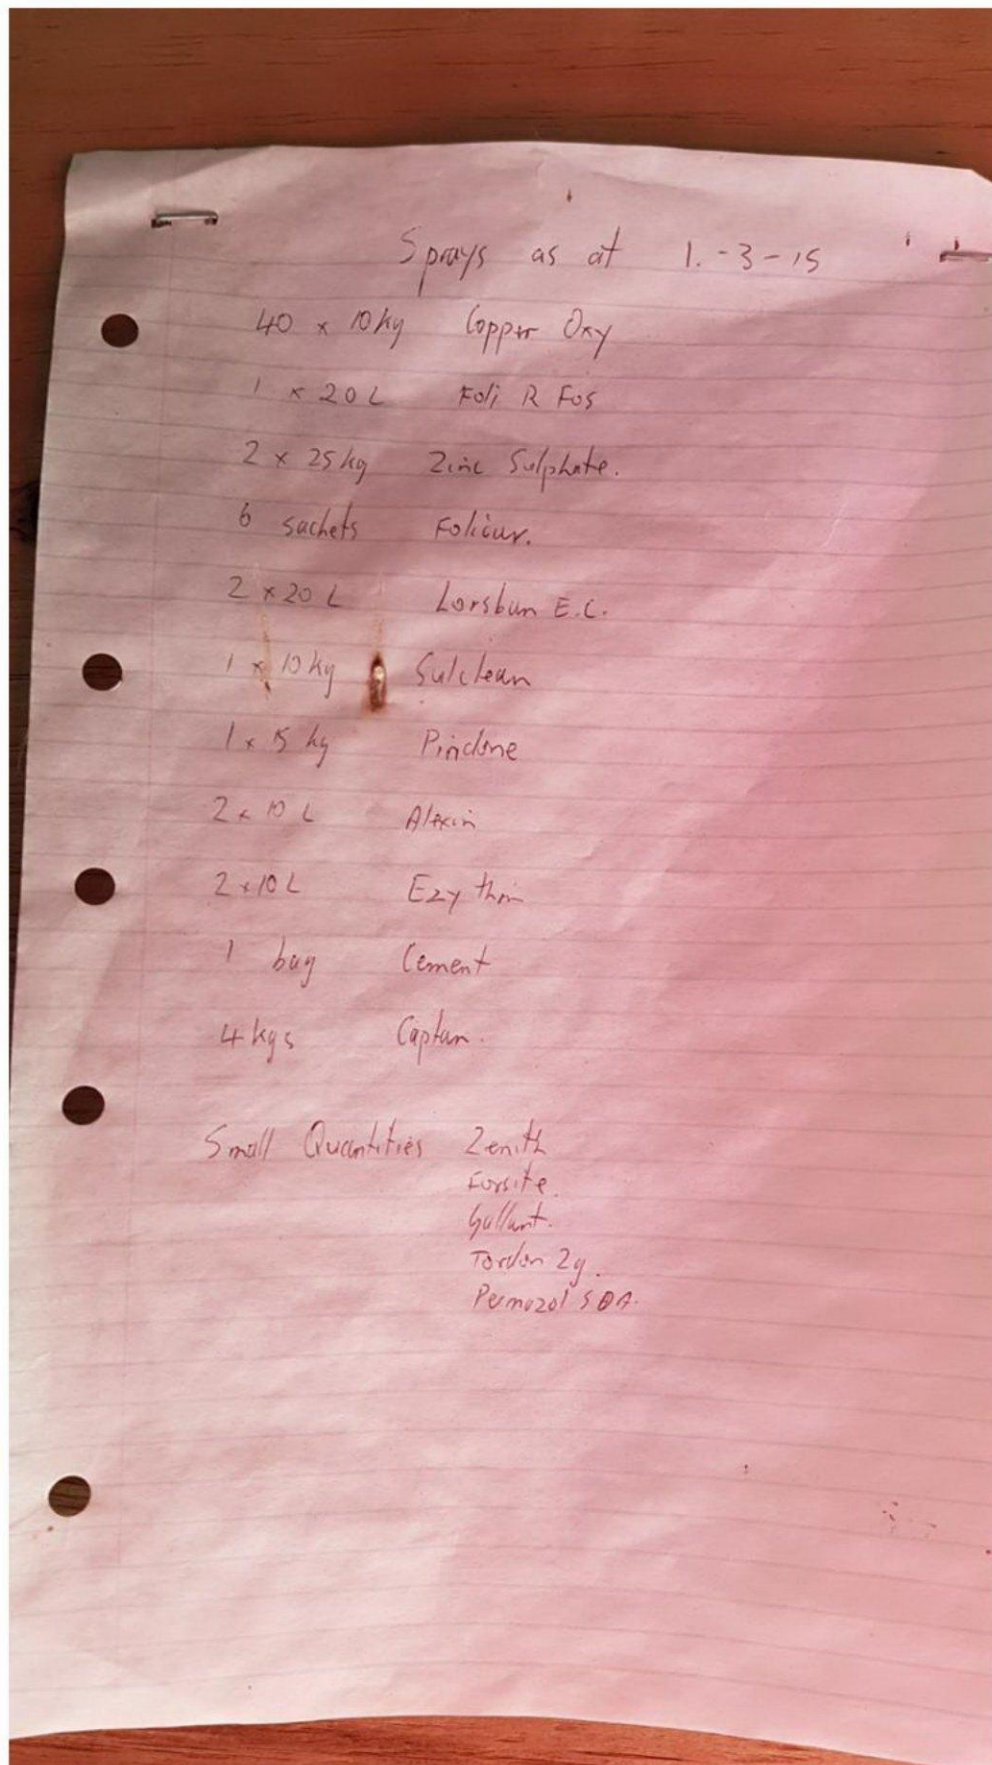 Sprays as at 1.-3-15
40 x 10kg Copper Oxy
1 x 20L Foli R Fos
2 x 25kg Zinc Sulphate.
6 sachets Folicur.
2 x 20 L Lorsban E.C.
1 x 10kg Sulclean
1 x 15 kg Pindone
2 x 10 L Alexin
2 x 10 L Ezy thin
1 bag Cement
4 kgs Captan.
Small Quantities Zenith
Forsite.
Gallant.
Tordon 2g.